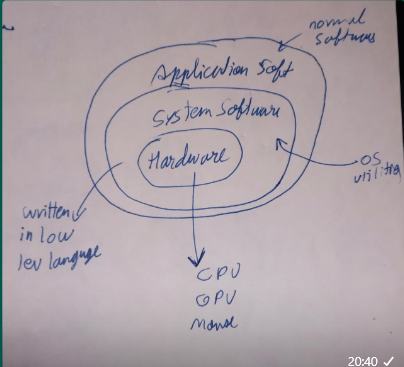 normal
softwares
Application Soft
System Software
Hardware
OS
utilities
written
in low
lev languge
CPU
GPU
Mouse
20:40